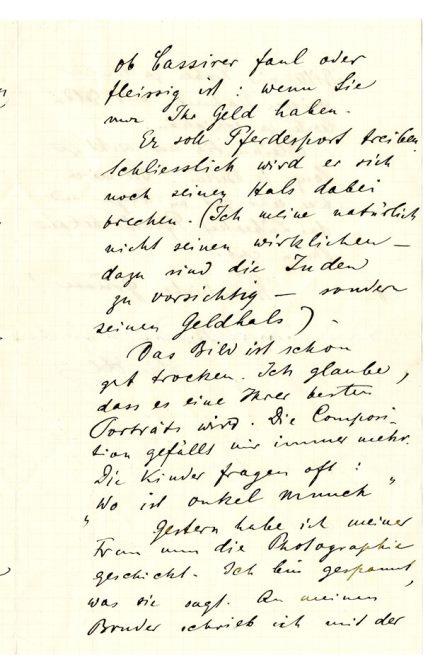 ob Cassirer faul oder
fleissig ist: wenn Sie
nur Ihr Geld haben.
Er soll Pferdesport treiben
schliesslich wird er sich
noch seinen Hals dabei
brechen. (Ich meine natürlich
nicht seinen wirklichen –
dazu sind die Juden
zu vorsichtig – sondern
seinen Geldhals) –
Das Bild ist schon
gut trocken. Ich glaube,
dass es eine Ihrer besten
Porträts wird. Die Composi-
tion gefällt mir immer mehr.
Die Kinder fragen oft:
„Wo ist onkel Munch"
Gestern habe ich meiner
Frau nun die Photographie
geschickt. Ich bin gespannt,
was sie sagt. An meinen
Bruder schrieb ich mit der